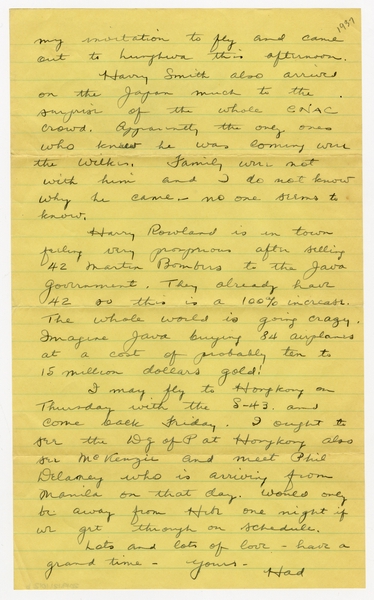 1937
my invitation to fly and came
out to Lunghwa this afternoon.
Harry Smith also arrived
on the Japan much to the
surprise of the whole CNAC
crowd. Apparently the only ones
who knew he was coming were
the Wilkes. Family were not
with him and I do not know
why he came - no one seems to
know.
Harry Rowland is in town
feeling very prosperous after selling
42 Martin Bombers to the Java
government. They already have
42 so this is a 100% increase.
The whole world is going crazy.
Imagine Java buying 84 airplanes
at a cost of probably ten to
15 million dollars gold!
I may fly to Hongkong on
Thursday with the S-43. and
come back Friday. I ought to
see the Dg of P at Hongkong also
see McKenzie and meet Phil
Delaney who is arriving from
Manila on that day. Would only
be away from here one night if
we get through on schedule.
Lots and lots of love - have a
grand time - Yours -
Had